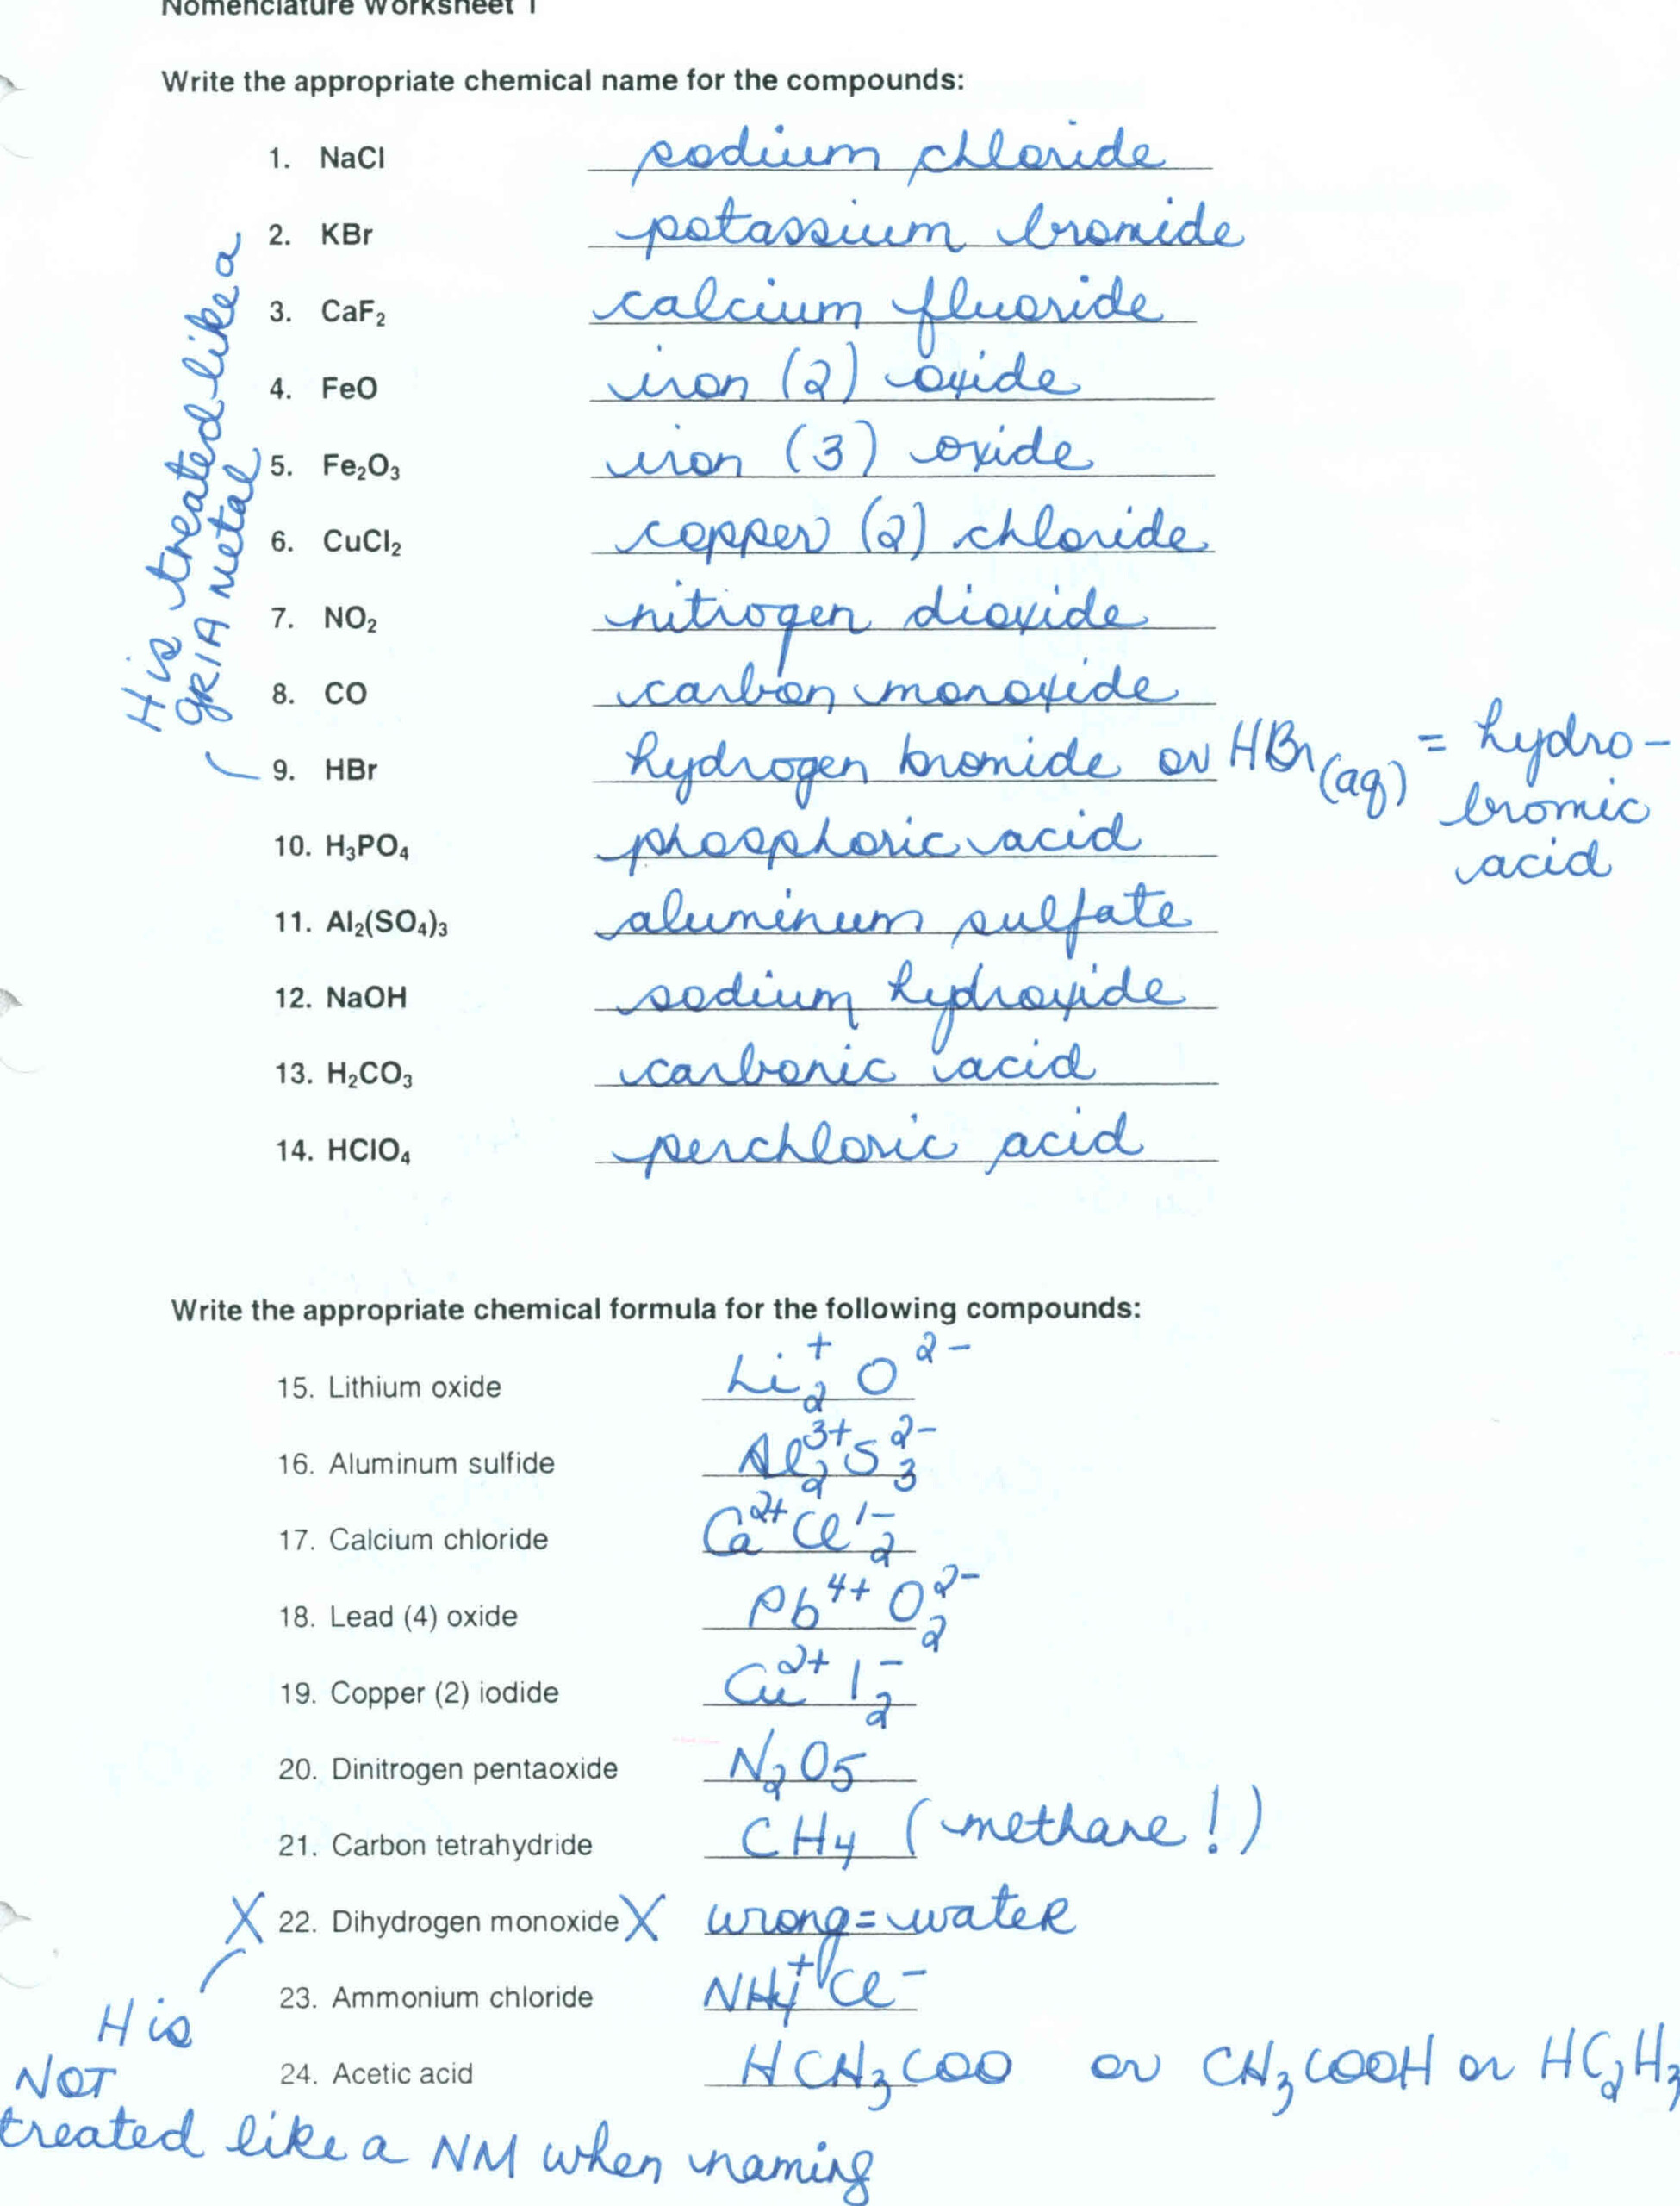 Nomenclature Worksheet 1
Write the appropriate chemical name for the compounds:
1. NaCl sodium chloride
2. KBr potassium bromide
3. CaF₂ calcium fluoride
4. FeO iron (2) oxide
5. Fe₂O₃ iron (3) oxide
6. CuCl₂ copper (2) chloride
7. NO₂ nitrogen dioxide
8. CO carbon monoxide
H is treated like a
grIA metal
9. HBr hydrogen bromide or HBr(aq) = hydro-
bromic
acid
10. H₃PO₄ phosphoric acid
11. Al₂(SO₄)₃ aluminum sulfate
12. NaOH sodium hydroxide
13. H₂CO₃ carbonic acid
14. HClO₄ perchloric acid
Write the appropriate chemical formula for the following compounds:
15. Lithium oxide Li₂⁺ O²⁻
16. Aluminum sulfide Al₂³⁺S₃²⁻
17. Calcium chloride Ca²⁺Cl₂¹⁻
18. Lead (4) oxide Pb⁴⁺ O₂²⁻
19. Copper (2) iodide Cu²⁺ I₂⁻
20. Dinitrogen pentaoxide N₂O5
21. Carbon tetrahydride CH₄ (methane!)
X 22. Dihydrogen monoxide X wrong = water
23. Ammonium chloride NH₄⁺Cl⁻
24. Acetic acid HCH₃COO or CH₃COOH or HC₂H₃
H is
NOT
treated like a NM when naming